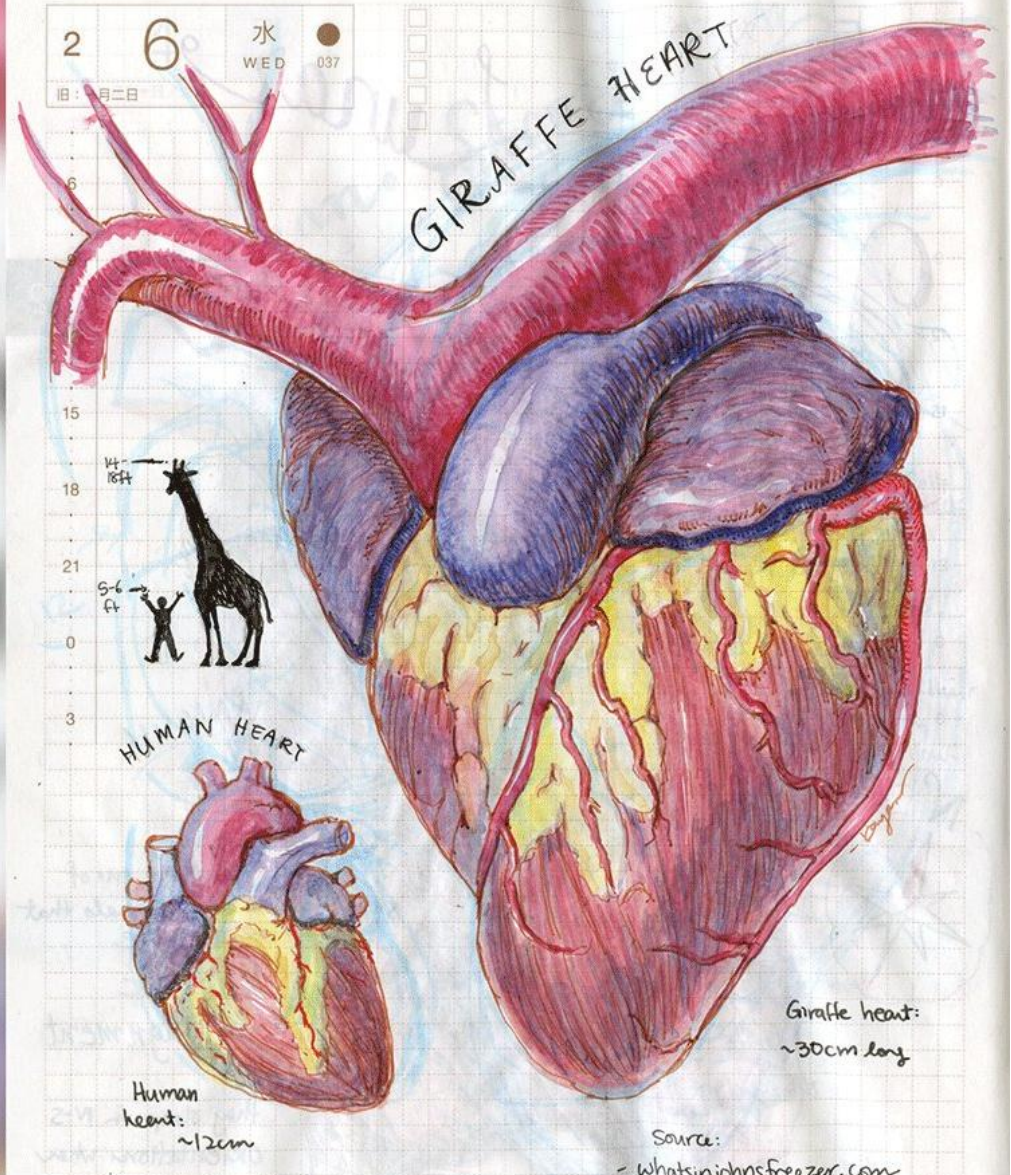 2 6 水 ●
WED 037
旧: 月二日
GIRAFFE HEART
6
15
18
21
0
3
14-
18ft
5-6
ft
HUMAN HEART
Giraffe heart:
~30cm long
Human
heart:
~12cm
Source:
- whatsinjohnsfreezer.com